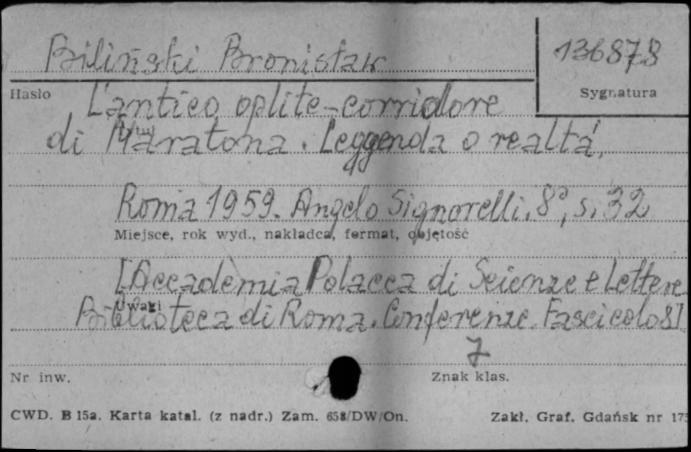 Biliński Bronisław
136878
Hasło
Sygnatura
L'antico oplite-corridore
di Maratona. Leggenda o realtá,
Tytuł
Roma 1959. Angelo Signorelli, 8°, s. 32
Miejsce, rok wyd., nakładca, format, objętość
[Accademia Polacca di Scienze e Lettere
Uwagi
Biblioteca di Roma. Conferenze. Fascicolo 8]
7
Nr inw.
Znak klas.
CWD. B 15a. Karta katal. (z nadr.) Zam. 658/DW/On.
Zakł. Graf. Gdańsk nr 173